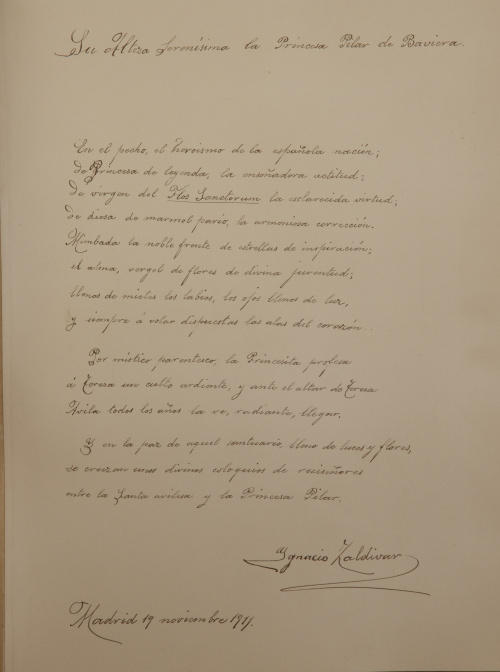 Su Alteza Serenísima la Princesa Pilar de Baviera.
En el pecho, el heroismo de la española nación;
de Princesa de leyenda, la ensoñadora actitud;
de virgen del Flos Sanctorum la esclarecida virtud;
de diosa de marmol pario, la armoniosa corrección.
Nimbada la noble frente de estrellas de inspiración;
el alma, vergel de flores de divina juventud;
llenos de mieles los labios, los ojos llenos de luz,
y siempre á volar dispuestas las alas del corazón.
Por místico parentesco, la Princesita profesa
á Teresa un culto ardiente, y ante el altar de Teresa
Avila todos los años la ve, radiante, llegar.
Y en la paz de aquel santuario, lleno de luces y flores,
se cruzan unos divinos coloquios de ruiseñores
entre la Santa avilesa y la Princesa Pilar.
Ignacio Zaldivar
Madrid 19 noviembre